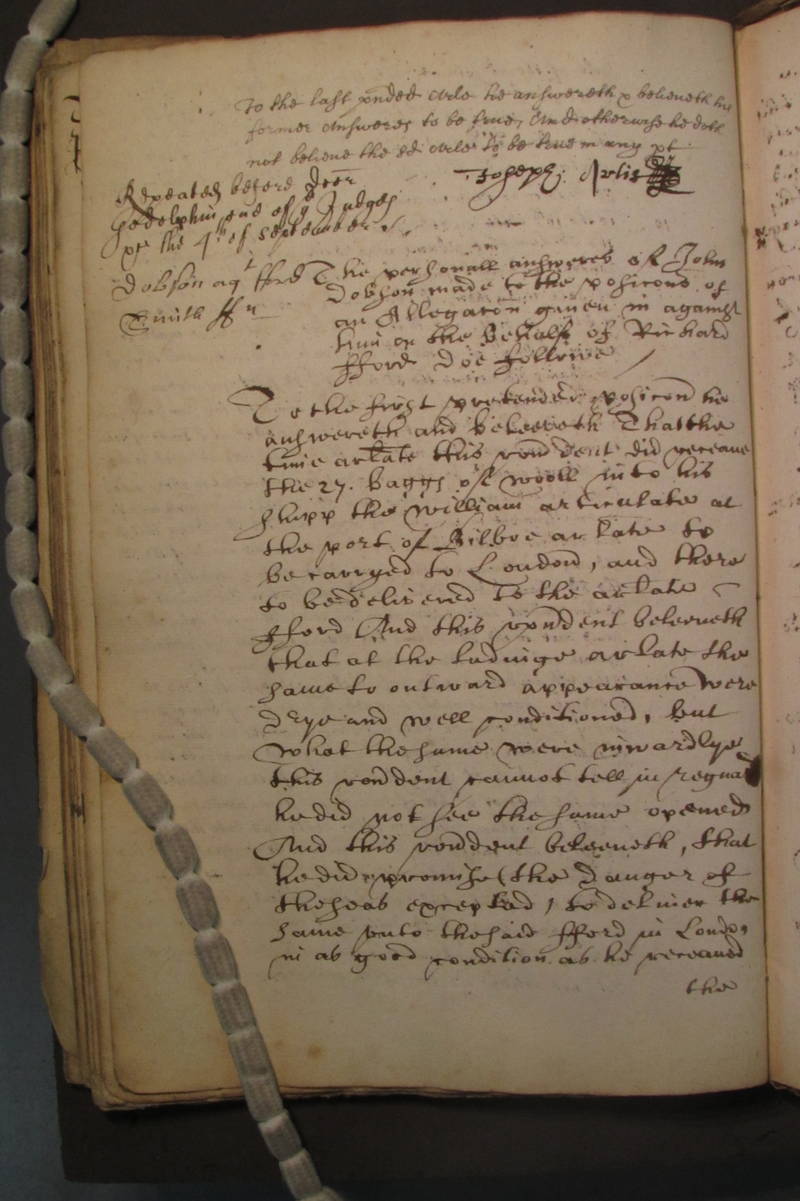 To the last pnded Arle he answereth & beleeveth his
former Answeres to be true, And otherwise he doth
not beleive the sd Arle to be true in any pt
Joseph: Arlis
Repeated before Doctr
Godolphin one of ye Judges
the 4th of September
Dobson agt fford
Smith ffr
The personall answeres of John
Dobson made to the posicons of
an Allegacon given in against
him on the behalfe of Richard
fford doe followe
To the first pretended posicon he
answereth and beleeveth That the
time arlate this rondent did receave
the 27. baggs of wooll into his
shipp the william articulate at
the port of Bilboe arlate to
be carryed to London, and there
to be delivered to the arlate
fford And this rondent beleeveth
that at the ladinge arlate the
same to outward appearance were
drye and well conditioned, but
what the same were inwardlye
this rondent cannot tell in regard
he did not see the same opened
And this rondent beleeveth, that
he did promise (the danger of
the seas excepted) to deliver the
same unto the said fford in London
in as good condition as he receaved
the